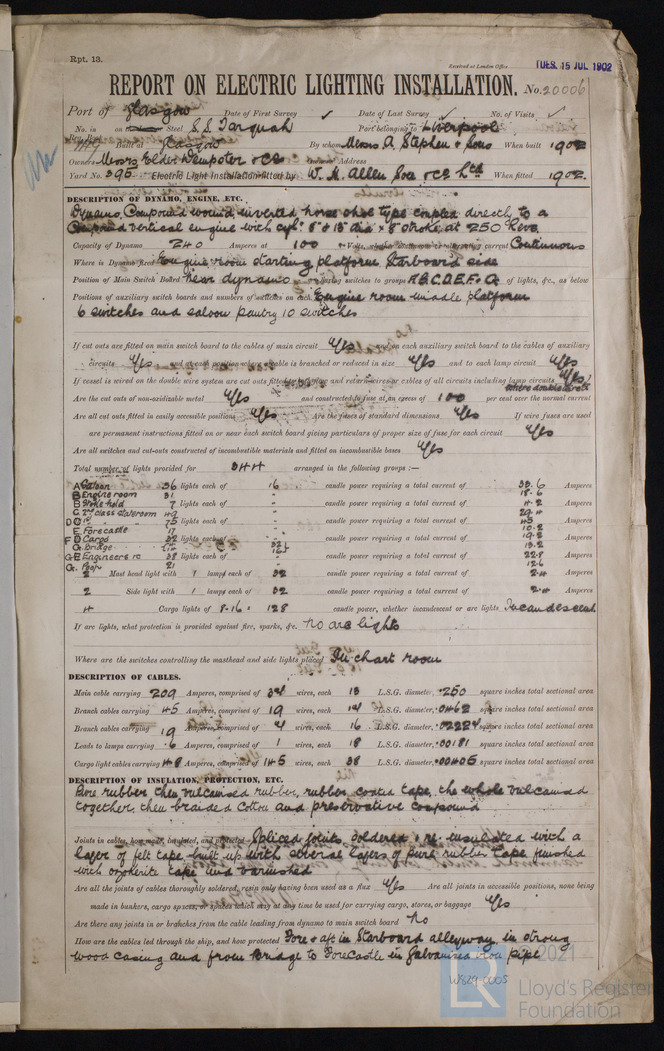 Rpt. 13.
Received at London Office TUES. 15 JUL 1902
REPORT ON ELECTRIC LIGHTING INSTALLATION. No. 20006
Port of Glasgow Date of First Survey ✓ Date of Last Survey ✓ No. of Visits ✓
No. in on the Steel S.S. Tarquah Part belonging to Liverpool
Reg. Book Built at Glasgow By whom Messrs A. Stephen & Sons When built 1902
Owners Messrs Elder Dempster & Co Owners' Address
Yard No. 395 Electric Light Installation fitted by W. H. Allen Son & Co Ltd When fitted 1902
DESCRIPTION OF DYNAMO, ENGINE, ETC.
Dynamo, Compound wound inverted horse shoe type coupled directly to a
Compound vertical engine with cyls 8 & 13 dia × 8 stroke at 250 Revs.
Capacity of Dynamo 240 Amperes at 100 Volts, whether continuous or alternating current Continuous
Where is Dynamo fixed Engine room starting platform Starboard side
Position of Main Switch Board near dynamo having switches to groups A B, C, D, E, F & G of lights, &c., as below
Positions of auxiliary switch boards and numbers of switches on each Engine room middle platform
6 switches and saloon pantry 10 switches
If cut outs are fitted on main switch board to the cables of main circuit Yes and on each auxiliary switch board to the cables of auxiliary
circuits Yes and at each position where a cable is branched or reduced in size Yes and to each lamp circuit Yes
If vessel is wired on the double wire system are cut outs fitted to both flow and return wires or cables of all circuits including lamp circuits Yes
Are the cut outs of non-oxidizable metal Yes and constructed to fuse at an excess of 100 per cent over the normal current
Are all cut outs fitted in easily accessible positions Yes Are the fuses of standard dimensions Yes If wire fuses are used
are permanent instructions fitted on or near each switch board giving particulars of proper size of fuse for each circuit Yes
Are all switches and cut-outs constructed of incombustible materials and fitted on incombustible bases Yes
Total number of lights provided for 344 arranged in the following groups :—
A Saloon 56 lights each of 16 candle power requiring a total current of 33.6 Amperes
B Engine room 31 18.6
B Stoke hold 7 lights each of candle power requiring a total current of 4.2 Amperes
C 2nd class stateroom 49 29.4
D 1st 75 lights each of candle power requiring a total current of 45 Amperes
E Forecastle 17 10.2
F Cargo 32 lights each of candle power requiring a total current of 19.2 Amperes
G. Bridge 32 16 13.2
G. Engineers rs 38 lights each of candle power requiring a total current of 22.8 Amperes
G. Poop 21 12.6
2 Mast head light with 1 lamps each of 32 candle power requiring a total current of 2.4 Amperes
2 Side light with 1 lamps each of 32 candle power requiring a total current of 2.4 Amperes
4 Cargo lights of 8-16 = 128 candle power, whether incandescent or arc lights Incandescent
If arc lights, what protection is provided against fire, sparks, &c. no arc lights
Where are the switches controlling the masthead and side lights placed In chart room
DESCRIPTION OF CABLES.
Main cable carrying 209 Amperes, comprised of 34 wires, each 13 L.S.G. diameter, .250 square inches total sectional area
Branch cables carrying 45 Amperes, comprised of 19 wires, each 14 L.S.G. diameter, .0462 square inches total sectional area
Branch cables carrying 19 Amperes, comprised of 4 wires, each 16 L.S.G. diameter, .02224 square inches total sectional area
Leads to lamps carrying .6 Amperes, comprised of 1 wires, each 18 L.S.G. diameter, .00181 square inches total sectional area
Cargo light cables carrying 4.8 Amperes, comprised of 145 wires, each 38 L.S.G. diameter, .00405 square inches total sectional area
DESCRIPTION OF INSULATION, PROTECTION, ETC.
Pure rubber then vulcanised rubber, rubber coated tape, the whole vulcanised
together, then braided cotton and preservative compound
Joints in cables, how made, insulated, and protected Spliced joints, soldered & re-insulated with a
layer of felt tape built up with several layers of pure rubber tape finished
with ozokerite tape and varnished
Are all the joints of cables thoroughly soldered, resin only having been used as a flux Yes Are all joints in accessible positions, none being
made in bunkers, cargo spaces, or spaces which may at any time be used for carrying cargo, stores, or baggage Yes
Are there any joints in or branches from the cable leading from dynamo to main switch board No
How are the cables led through the ship, and how protected Fore & aft in Starboard alleyway in strong
wood casing and from Bridge to Forecastle in Galvanised iron pipe
W829-0005
2021
LR
Lloyd's Register
Foundation